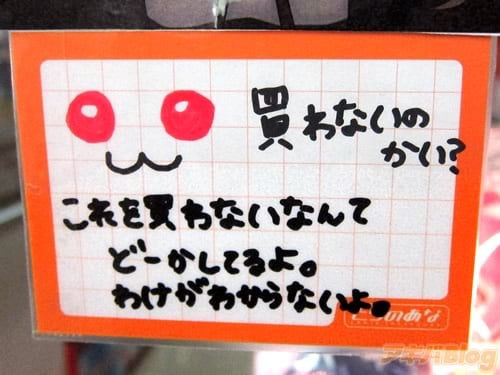 買わないの
かい?
これを買わないなんて
どーかしてるよ。
わけがわからないよ。
とらのあな
アキバBlog